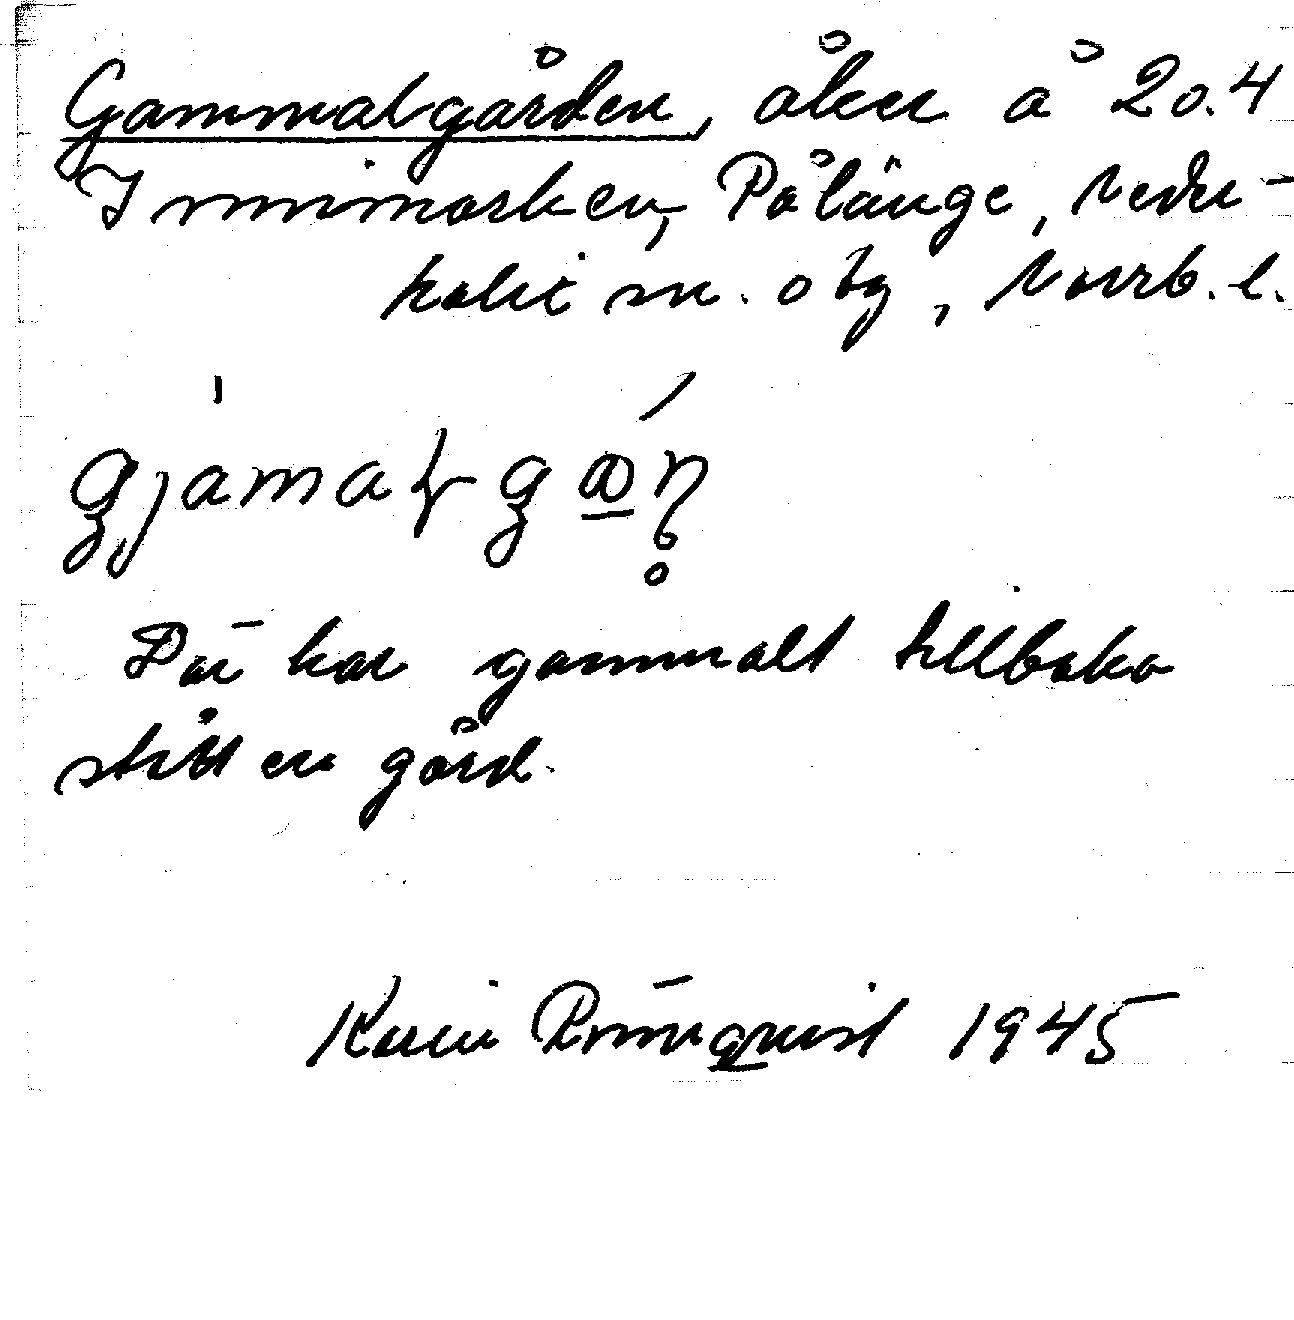 Gammalgården, åker å 20.4
I nnimarken, Pålänge, Neder-
kalix sn. o bg, Norrb. l.
gjamaļgɷṇ̊
Där har gammalt tillbaka
stått en gård.
Karin Rönnquist 1945